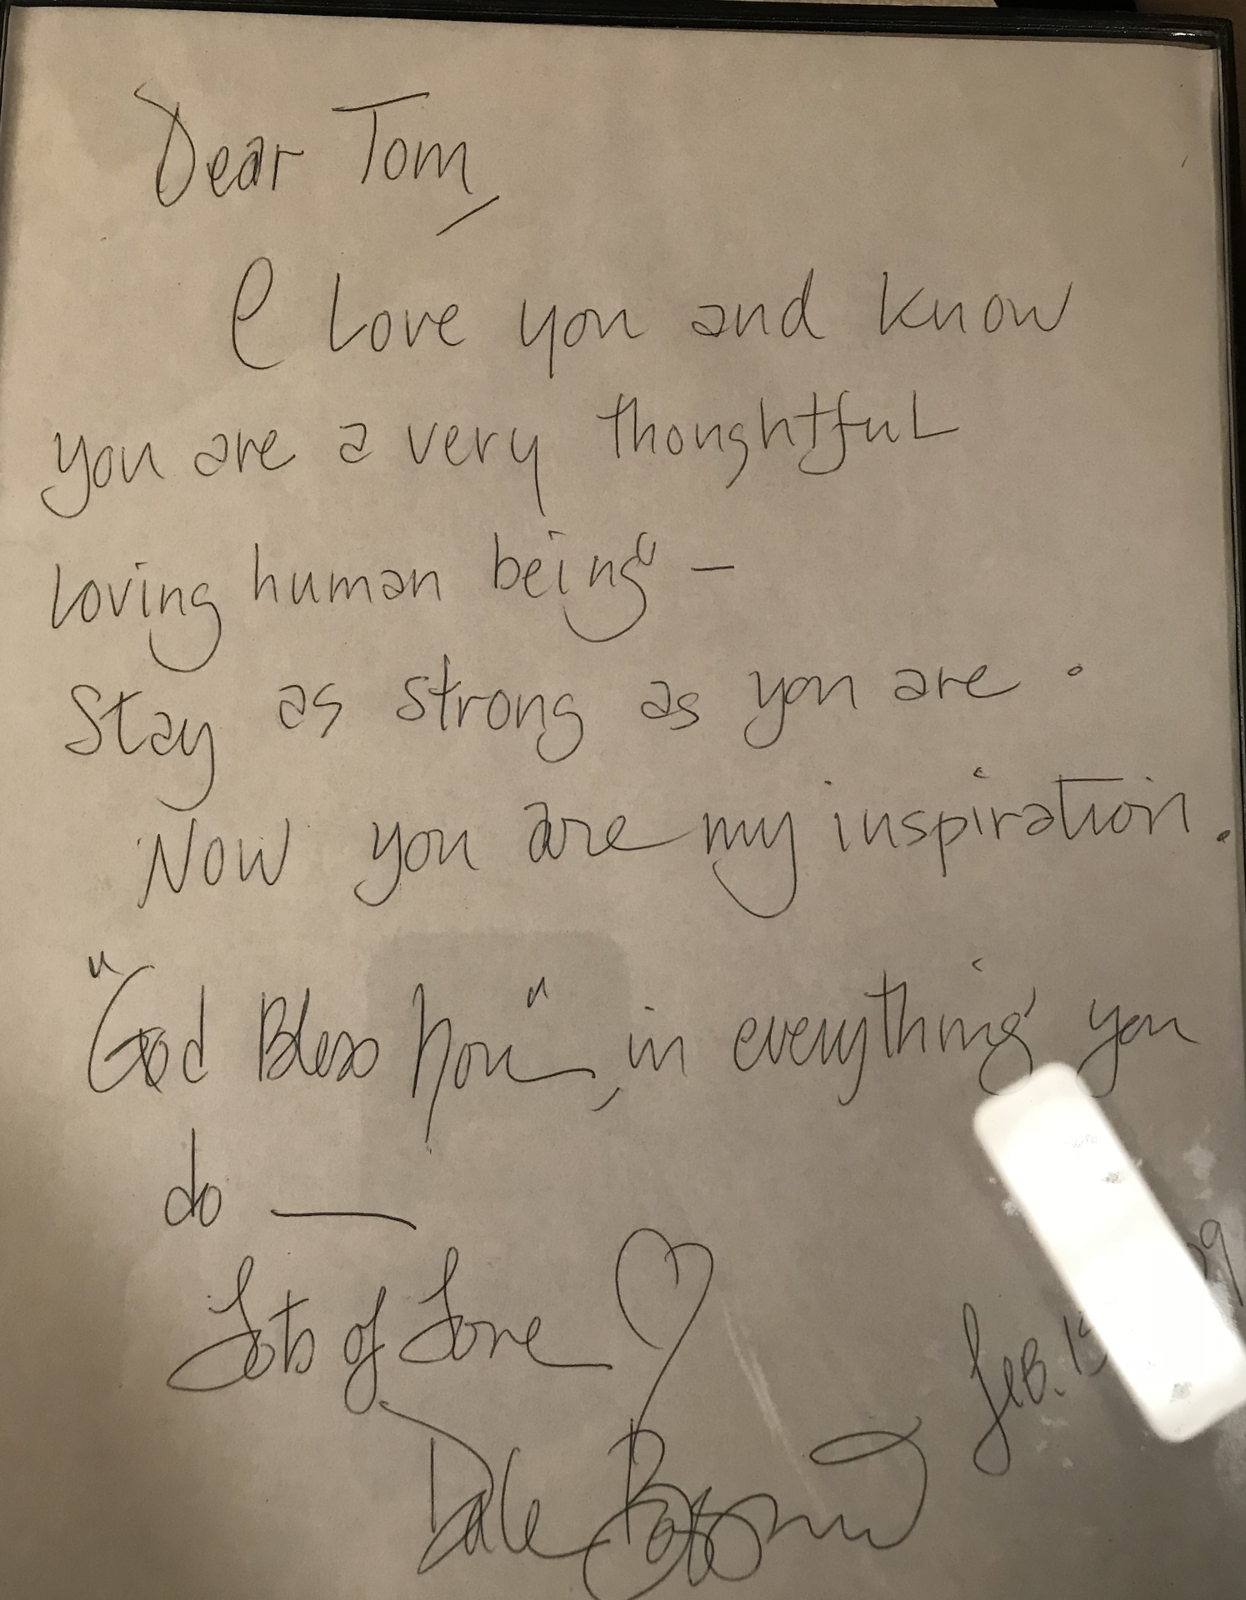 Dear Tom,
I love you and know
you are a very thoughtful
loving human being" –
Stay as strong as you are.
Now you are my inspiration.
"God Bless You", in everything you
do —
Lots of Love ♡
Feb. 15
Dale